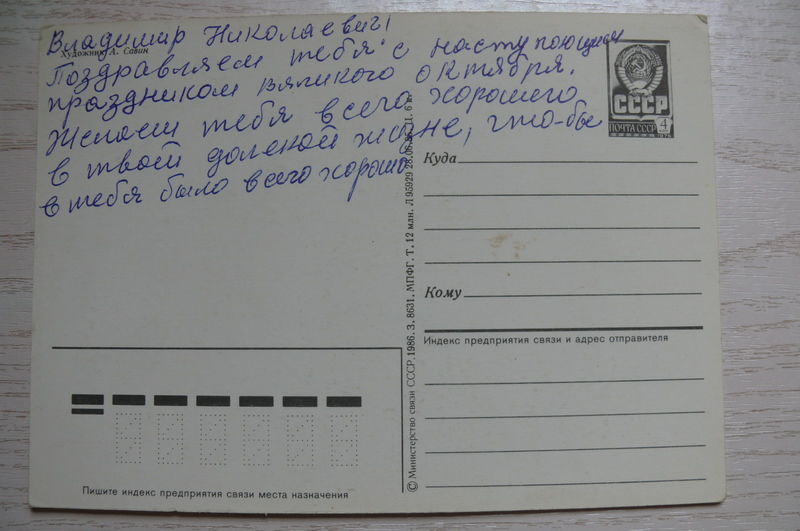 Владимир Николаевич!
Художник А. Савин
Поздравляем тебя с наступающим
праздником вялиkого октября.
Желаем тебя всего хорошего
в твоей долекой жизне, что-бы
в тебя было всего хорошо
СССР
ПОЧТА СССР 4
Куда
Кому
Индекс предприятия связи и адрес отправителя
© Министерство связи СССР. 1986. З. 8631. МПФГ. Т. 12 млн. Л 95929 28.06.86. Ц. 6 к.
Пишите индекс предприятия связи места назначения